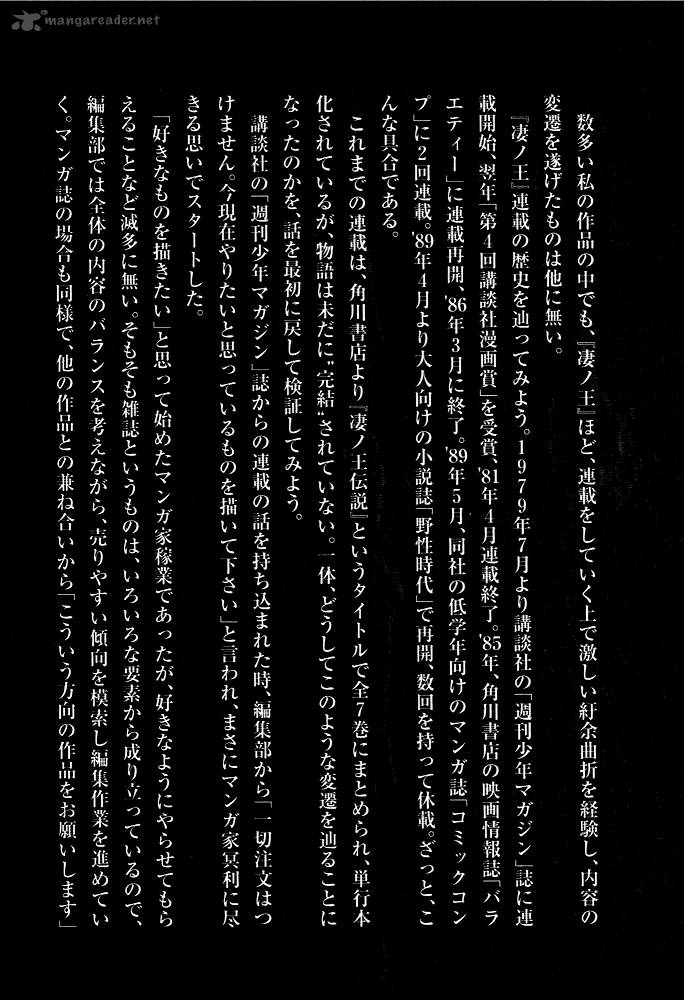 mangareader.net
数多い私の作品の中でも、『凄ノ王』ほど、連載をしていく上で激しい紆余曲折を経験し、内容の
変遷を遂げたものは他に無い。
『凄ノ王』連載の歴史を辿ってみよう。1979年7月より講談社の「週刊少年マガジン」誌に連
載開始、翌年「第4回講談社漫画賞」を受賞、'81年4月連載終了。'85年、角川書店の映画情報誌「バラ
エティー」に連載再開、'86年3月に終了。'89年5月、同社の低学年向けのマンガ誌「コミックコン
プ」に2回連載。'89年4月より大人向けの小説誌「野性時代」で再開、数回を持って休載。ざっと、こ
んな具合である。
これまでの連載は、角川書店より『凄ノ王伝説』というタイトルで全7巻にまとめられ、単行本
化されているが、物語は未だに"完結"されていない。一体、どうしてこのような変遷を辿ることに
なったのかを、話を最初に戻して検証してみよう。
講談社の「週刊少年マガジン」誌からの連載の話を持ち込まれた時、編集部から「一切注文はつ
けません。今現在やりたいと思っているものを描いて下さい」と言われ、まさにマンガ家冥利に尽
きる思いでスタートした。
「好きなものを描きたい」と思って始めたマンガ家稼業であったが、好きなようにやらせてもら
えることなど滅多に無い。そもそも雑誌というものは、いろいろな要素から成り立っているので、
編集部では全体の内容のバランスを考えながら、売りやすい傾向を模索し編集作業を進めてい
く。マンガ誌の場合も同様で、他の作品との兼ね合いから「こういう方向の作品をお願いします」